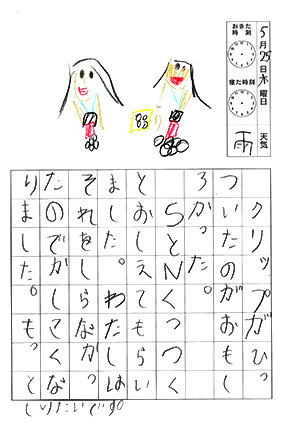 5月25日木曜日
天気 雨
おきた時刻
寝た時刻
クリップがひっ
ついたのがおもし
ろかった。
SとNくっつく
とおしえてもらい
ました。わたしは
それをしらなかっ
たのでかしこくな
りました。もっと
しりたいです。